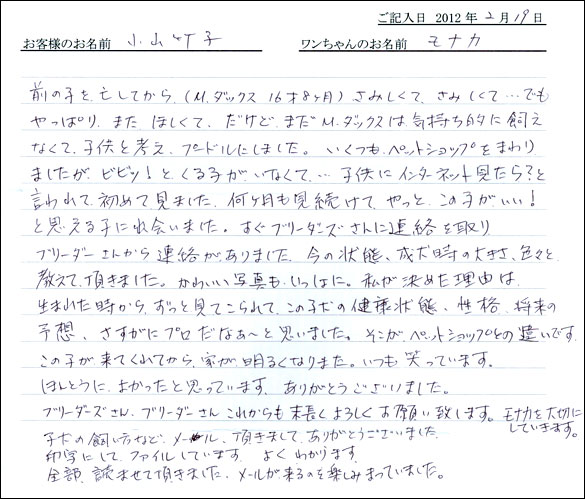 ご記入日 2012年2月19日
お客様のお名前 小山竹子 ワンちゃんのお名前 モナカ
前の子を亡してから、(M.ダックス 16才8ヶ月) さみしくて、さみしくて…でも
やっぱり、また、ほしくて、だけど、まだM.ダックスは気持ち的に飼え
なくて、子供と考え、プードルにしました。いくつも、ペットショップをまわり
ましたが、ビビッ!とくる子がいなくて、…子供にインターネット見たら?と
言われて、初めて見ました。何ヶ月も見続けて、やっと、この子がいい!
と思える子に出会いました。すぐブリーダーズさんに連絡を取り
ブリーダーさんから連絡がありました。今の状態、成犬時の大きさ、色々と
教えて頂きました。かわいい写真もいっぱいに。私が決めた理由は
生まれた時から、ずっと見てこられて、この子犬の健様状態、性格、将来の
予想、さすがにプロだなあ〜と思いました。そこが、ペットショップとの違いです。
この子が来てくれてから、家が明るくなりました。いつも笑っています。
ほんとうに、よかったと思っています。ありがとうございました。
ブリーダーズさん、ブリーダーさんこれからも末長くよろしくお願い致します。モナカを大切に
していきます。
子犬の飼い方など、メール、頂きまして、ありがとうございました。
印字にして、ファイルしています。よくわかります。
全部、読ませて頂きました、メールが来るのを楽しみまっていました。